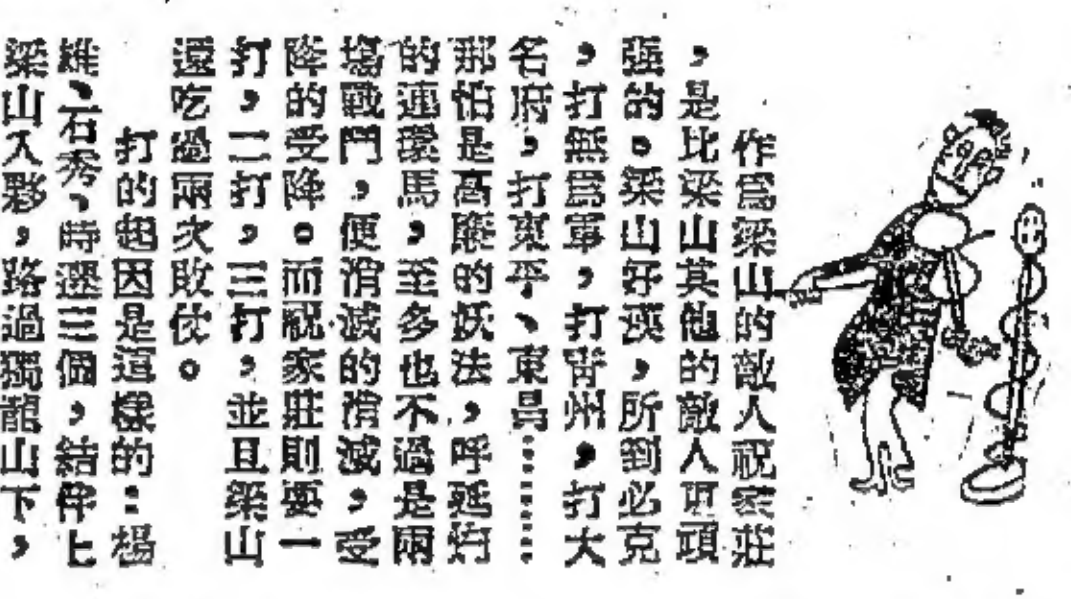 作爲梁山的敵人祝家莊
，是比梁山其他的敵人更頑
強的。梁山好漢，所到必克
，打無爲軍，打青州，打大
名府，打東平、東昌……
那怕是高廉的妖法，呼延灼
的連環馬，至多也不過是兩
塲戰鬥，便消滅的消滅，受
降的受降。而祝家莊則要一
打，二打，三打，並且梁山
還吃過兩次敗仗。
打的起因是這樣的：楊
雄、石秀、時遷三個，結伴上
梁山入夥，路過獨龍山下，